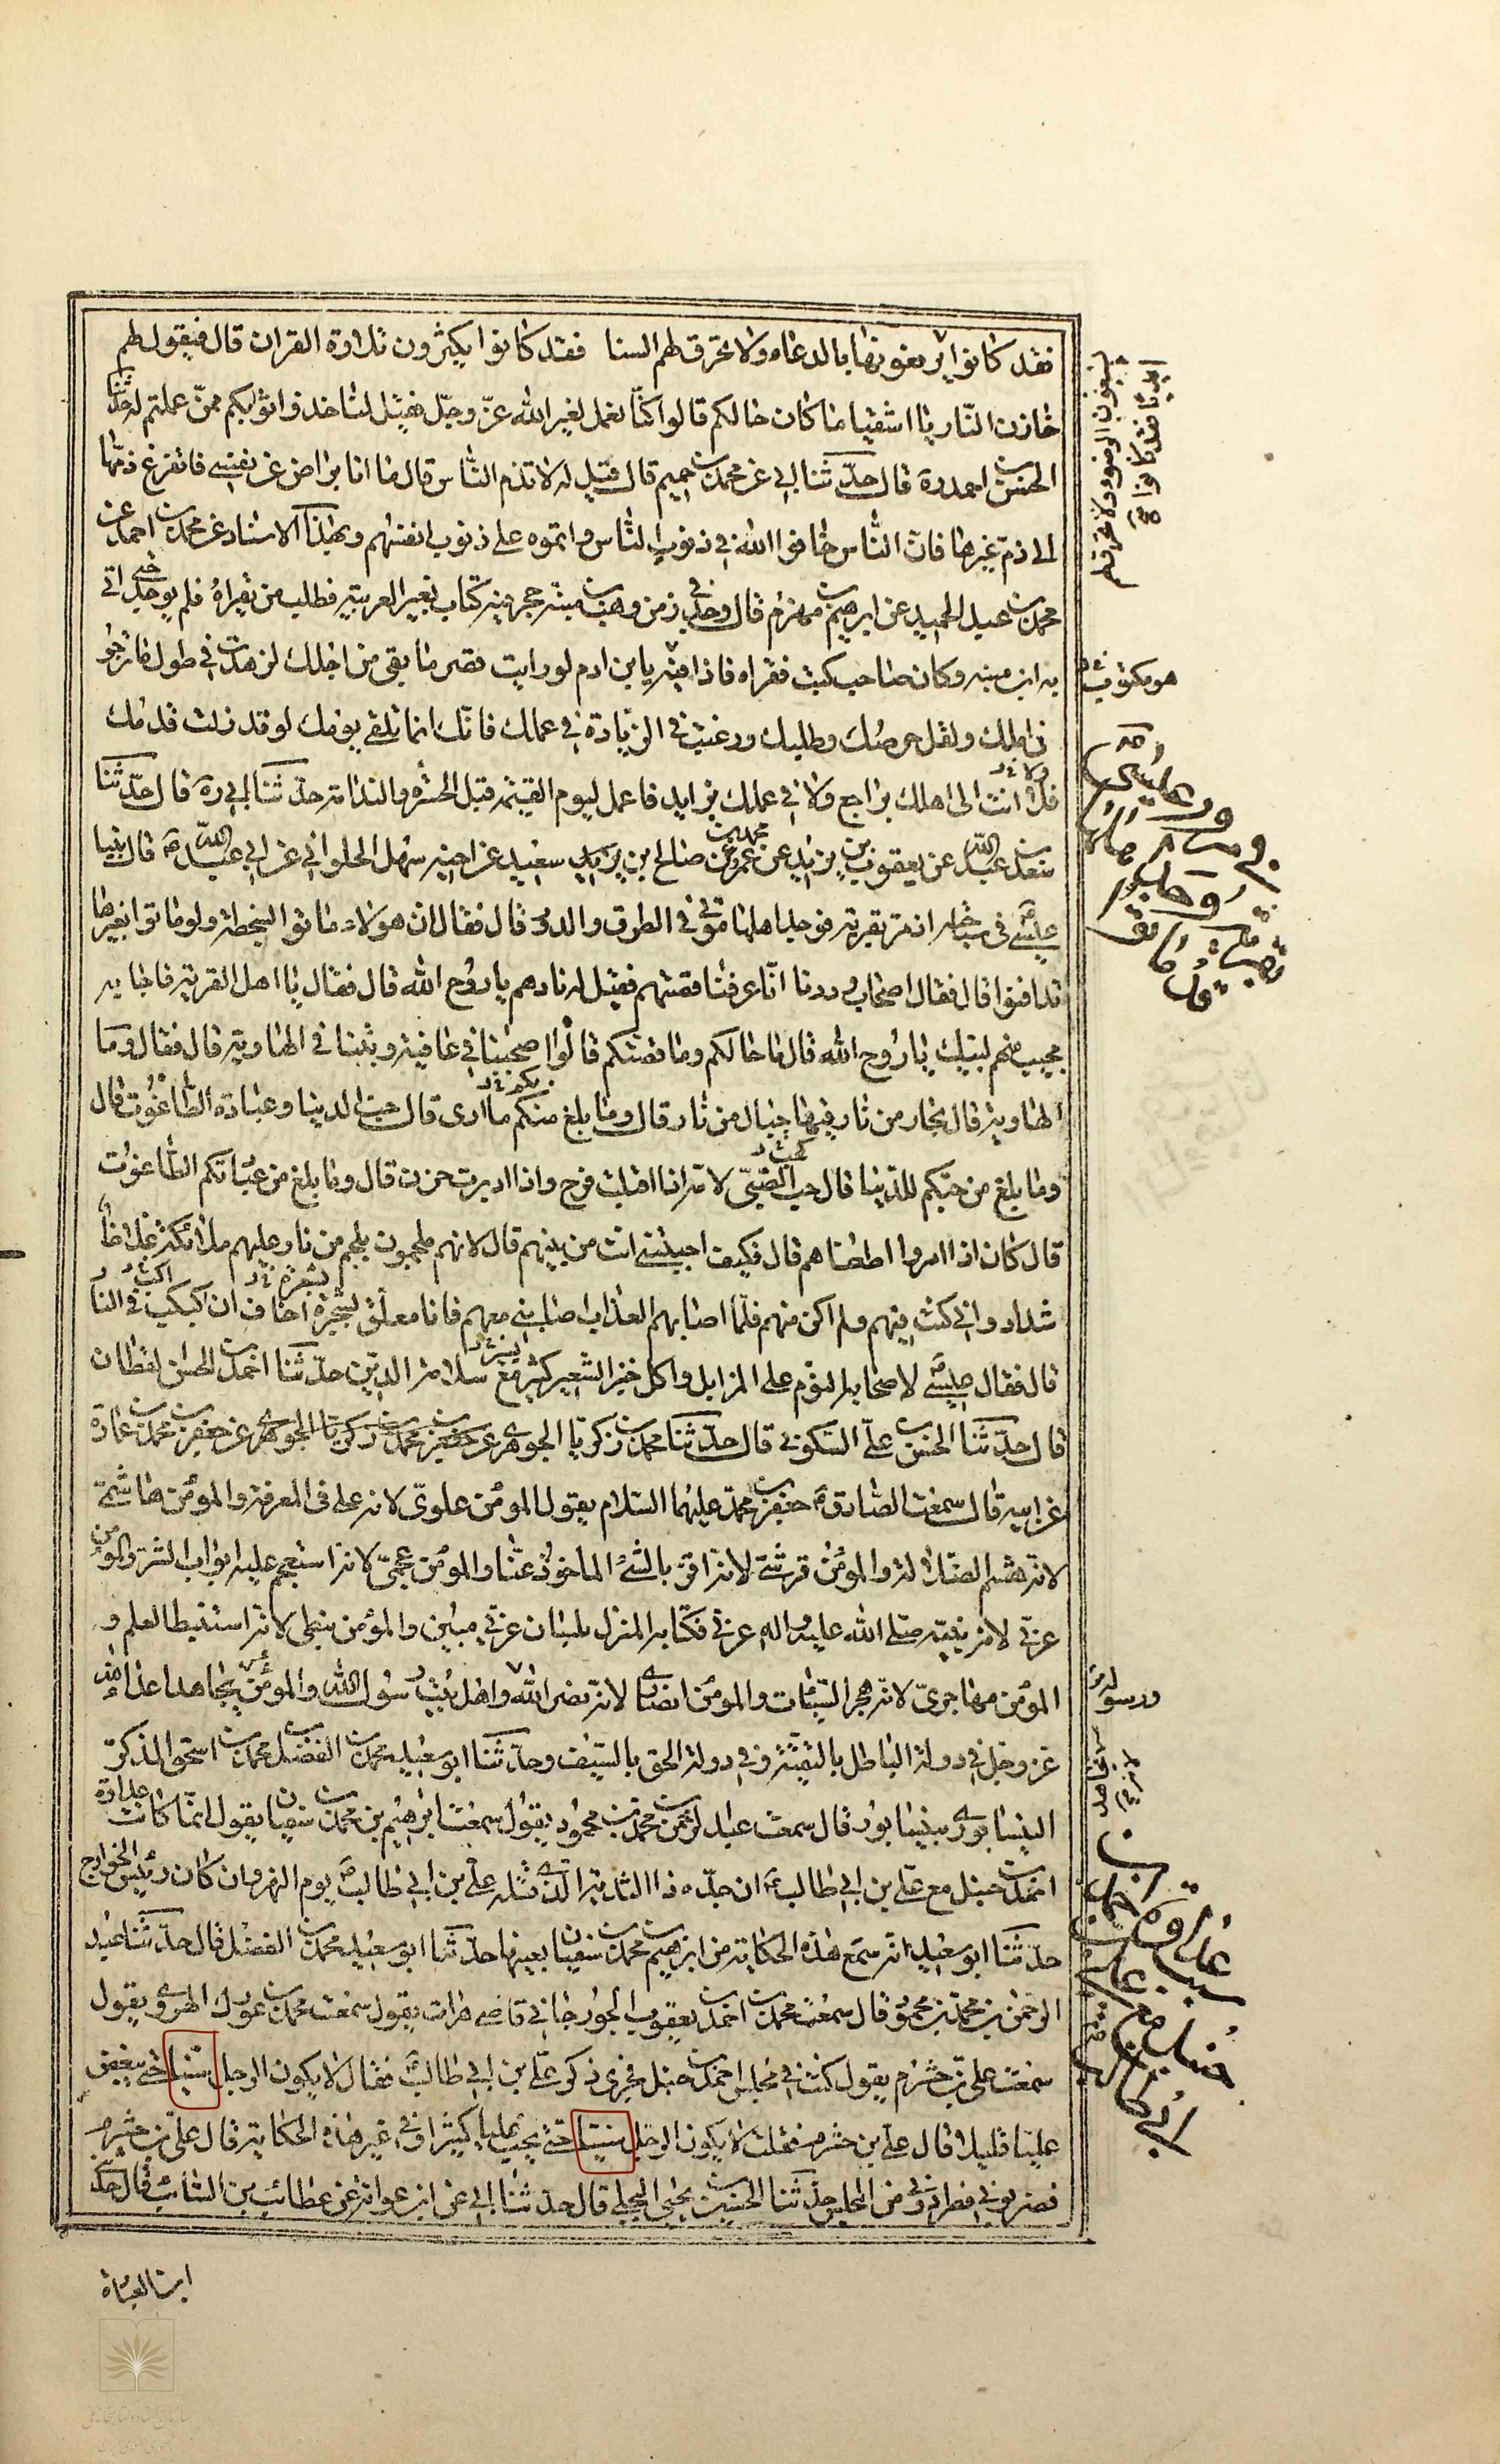 فقد كانوا يرفعونها بالدعاء ولا تحرق لهم السنا فقد كانوا يكثرون تلاوة القران قال فيقول لهم
خازن النار يا اشقيا ما كان حالكم قالوا كنا نعمل لغير الله عزّ وجلّ فقيل لتاخذوا ثوابكم ممن عملتم له حدثنا
الحسن بن احمد ره قال حدّثنا ابي عن محمد بن حميم قال قيل له لا تذم الناس قال ما انا براض عن نفسي فاتفرغ من ذمها
الى ذم غيرها فان الناس خافوا الله في ذنوب الناس واتمنوه على ذنوب انفسهم وبهذا الاسناد عن محمد بن احمد عن
محمد بن عبد الحميد عن ابرهيم بن مهزم قال وجد في زمن وهب بن منبه حجر فيه كتاب بغير العربية فطلب من يقراه فلم يوجد حتى اتى
به ابن منبه وكان صاحب كتب فقراه فاذا فيه يا بن ادم لو رايت قصر ما بقى من اجلك لزهدت في طول ما ترجو
من املك ولقل حرصك وطلبك ورغبت في الزيادة في عملك فانك انما تلقى يومك لو قد زلت قدمك
فلا انت الى اهلك براجع ولا في عملك بزايد فاعمل ليوم القيمة قبل الحسرة والندامة حدّثنا ابي ره قال حدّثنا
سعد بن عبد الله عن يعقوب بن يزيد عن محمد بن عمرو عن صالح بن سعيد عن اخيه سهل الحلواني عن ابي عبد الله ع قال بينا
عيسى في سياحته اذ مر بقرية فوجد اهلها موتى في الطرق والدور قال فقال ان هولاء ماتوا بسخطة ولو ماتوا بغيرها
تدافنوا قال فقال اصحابه وددنا انا عرفنا قصتهم فقيل له نادهم يا روح الله قال فقال يا اهل القرية فاجابه
مجيب منهم لبيك يا روح الله قال ما حالكم وما قصتكم قالوا اصبحنا في عافية وبتنا في الهاوية قال فقال وما
الهاوية قال بحار من نار فيها جبال من نار قال وما بلغ منكم ما ارى قال حب الدنيا وعبادة الطاغوت قال
وما بلغ من حبكم للدنيا قال حب الصبي لامه اذا اقبلت فرح واذا ادبرت حزن قال وما بلغ من عبادتكم الطاغوت
قال كان اذا امروا اطعناهم قال فكيف اجبتني انت من بينهم قال لانهم ملجمون بلجم من نار عليهم ملائكة غلاظ
شداد واني كنت فيهم ولم اكن منهم فلما اصابهم العذاب اصابني معهم فانا معلق بشجرة اخاف ان اكبكب في النا
قال فقال عيسى لاصحابه النوم على المزابل واكل خبز الشعير كثير مع سلامة الدين حدّثنا احمد بن الحسن القطان
قال حدّثنا الحسن بن علي السكوني قال حدّثنا محمد بن زكريا الجوهري عن جعفر بن محمد بن زكريا الجوهري عن جعفر بن محمد بن عمارة
عن ابيه قال سمعت الصادق ع جعفر بن محمد عليهما السلام يقول المؤمن علوي لانه علي في المعرفة والمؤمن هاشمي
لانه هشم الضلالة والمؤمن قرشي لانه اقر بالشئ الماخوذ عنا والمؤمن عجمي لانه استعجم عليه ابواب الشر والمؤمن
عربي لانه نبيه صلى الله عليه واله عربي وكتابه المنزل بلسان عربي مبين والمؤمن نبطي لانه استنبط العلم و
المؤمن مهاجري لانه هجر السيئات والمؤمن انصاري لانه نصر الله واهل بيت رسول الله والمؤمن يجاهد اعداء الله
عز وجل في دولة الباطل بالتقية وفي دولة الحق بالسيف وحدّثنا ابو سعيد محمد بن الفضل بن محمد بن اسحق المذكر
النيسابوري بنيسابور قال سمعت عبد الرحمن بن محمد بن محمود يقول سمعت ابرهيم بن محمد بن سفيان يقول انما كانت عداوة
احمد بن حنبل مع علي بن ابي طالب ع ان جده ذا الثدية الذي قتله علي بن ابي طالب ع يوم النهروان كان رئيس الخوارج
حدّثنا ابو سعيد انه سمع هذه الحكاية من ابرهيم بن محمد بن سفيان بعينها حدّثنا ابو سعيد محمد بن الفضل قال حدّثنا عبد
الرحمن بن محمد بن محمود قال سمعت محمد بن احمد بن يعقوب الجورجاني قاضي هرات يقول سمعت محمد بن عورك الهروي يقول
سمعت علي بن حشرم يقول كنت في مجلس احمد بن حنبل فجرى ذكر علي بن ابي طالب ع فقال لا يكون الرجل سنيا حتى يبغض
عليا قليلا قال علي بن حشرم فقلت لا يكون الرجل سنيا حتى يحب عليا كثيرا وفي غير هذه الحكاية قال علي بن حشرم
فضربوني وطردوني من المجلس حدّثنا الحسين بن يحيى البجلي قال حدثنا ابي عن ابن عوانة عن عطا بن السائب قال حدّ
هو مكتوب
ورسوله
ابن العباة